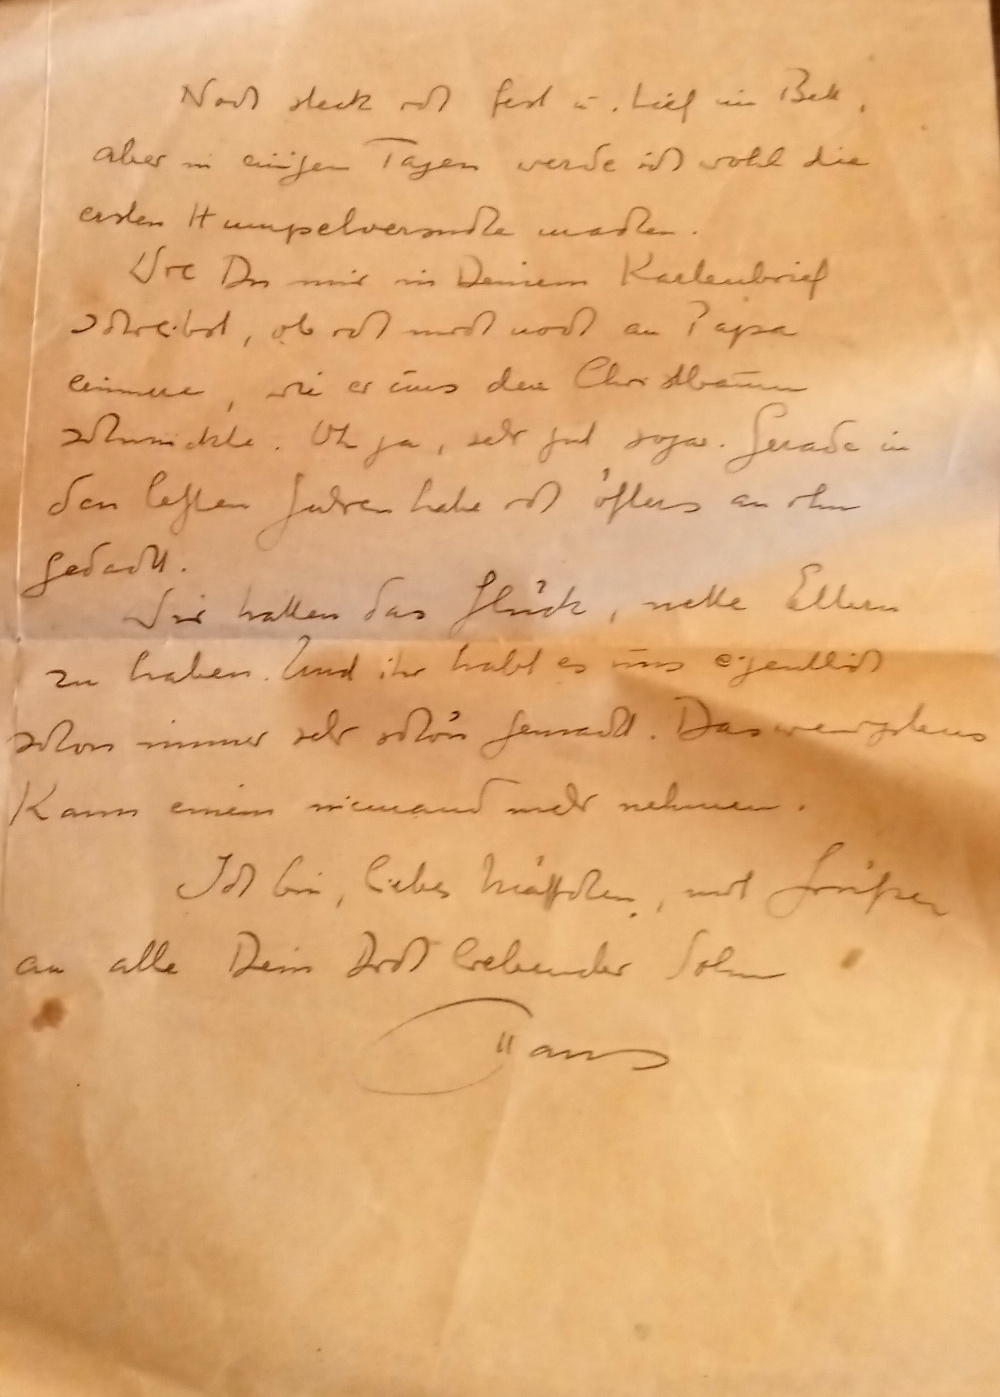 Noch steck ich fest u. tief im Bett,
aber in einigen Tagen werde ich wohl die
ersten Humpelversuche machen.
Wie Du mir in Deinem Kartenbrief
schreibst, ob ich mich noch an Papa
erinnere, wie er uns den Christbaum
schmückte. Oh ja, sehr gut sogar. Gerade in
den letzten Jahren habe ich öfters an ihn
gedacht.
Wir hatten das Glück, nette Eltern
zu haben. Und ihr habt es uns eigentlich
schon immer sehr schön gemacht. Das wenigstens
kann einem niemand mehr nehmen.
Ich bin, liebes, mit Grüßen
an alle Dein Dich liebender Sohn
Hans